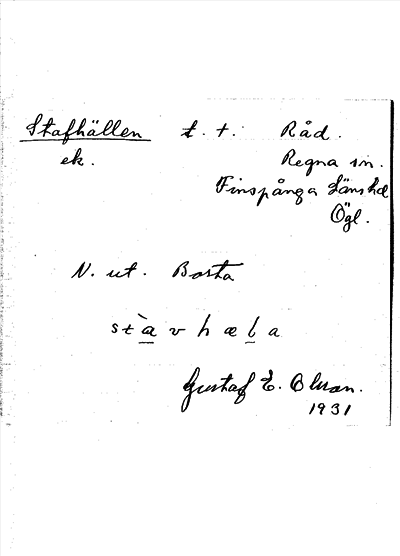 Stafhällen t. t. Råd.
ek. Regna sn.
Finspånga Länshd
Ögl.
N. ut. Borta
stàvhæla
Gustaf E. Olson.
1931